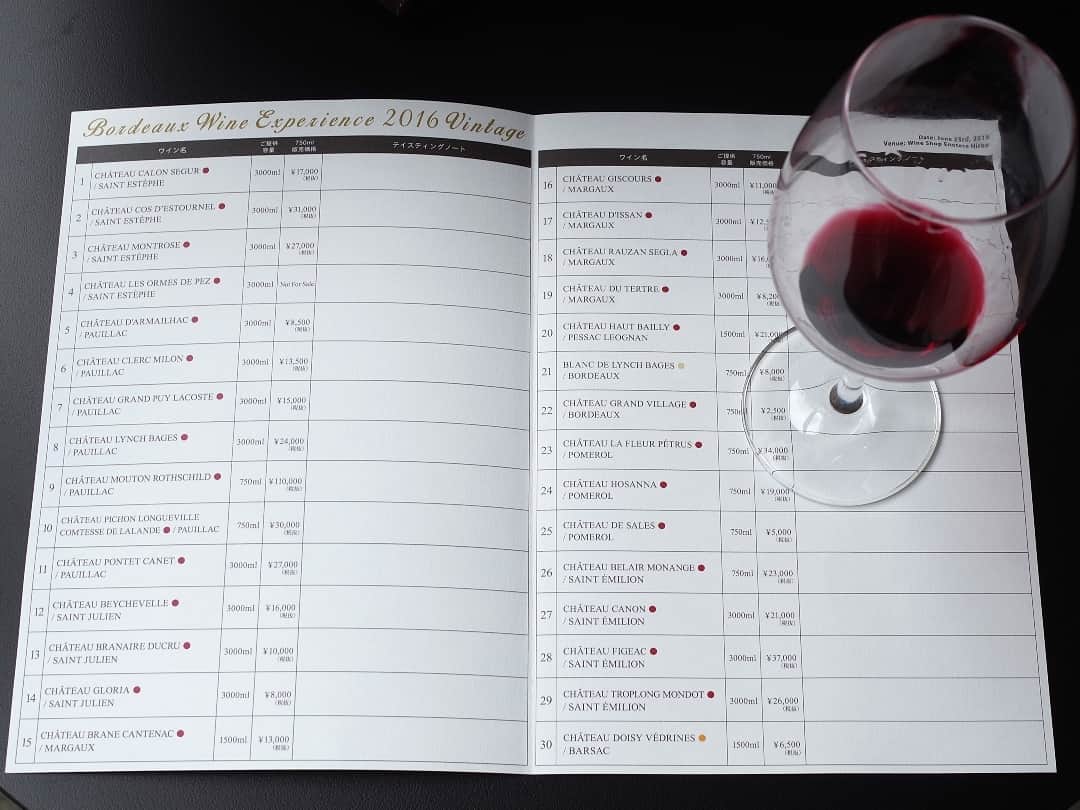 Bordeaux Wine Experience 2016 Vintage
ワイン名 ご提供容量 750ml販売価格 テイスティングノート
1 CHÂTEAU CALON SEGUR 3000ml ¥17,000
/ SAINT ESTÈPHE (税抜)
2 CHÂTEAU COS D'ESTOURNEL 3000ml ¥31,000
/ SAINT ESTÈPHE (税抜)
3 CHÂTEAU MONTROSE 3000ml ¥27,000
/ SAINT ESTÈPHE (税抜)
4 CHÂTEAU LES ORMES DE PEZ 3000ml Not For Sale
/ SAINT ESTÈPHE
5 CHÂTEAU D'ARMAILHAC 3000ml ¥8,500
/ PAUILLAC (税抜)
6 CHÂTEAU CLERC MILON 3000ml ¥13,500
/ PAUILLAC (税抜)
7 CHÂTEAU GRAND PUY LACOSTE 3000ml ¥15,000
/ PAUILLAC (税抜)
8 CHÂTEAU LYNCH BAGES 3000ml ¥24,000
/ PAUILLAC (税抜)
9 CHÂTEAU MOUTON ROTHSCHILD 750ml ¥110,000
/ PAUILLAC (税抜)
10 CHÂTEAU PICHON LONGUEVILLE 750ml ¥30,000
COMTESSE DE LALANDE / PAUILLAC (税抜)
11 CHÂTEAU PONTET CANET 3000ml ¥27,000
/ PAUILLAC (税抜)
12 CHÂTEAU BEYCHEVELLE 3000ml ¥16,000
/ SAINT JULIEN (税抜)
13 CHÂTEAU BRANAIRE DUCRU 3000ml ¥10,000
/ SAINT JULIEN (税抜)
14 CHÂTEAU GLORIA 3000ml ¥8,000
/ SAINT JULIEN (税抜)
15 CHÂTEAU BRANE CANTENAC 1500ml ¥13,000
/ MARGAUX (税抜)
Date: June 23rd, 2019
Venue: Wine Shop Enoteca
ワイン名 ご提供容量 750ml販売価格
16 CHÂTEAU GISCOURS 3000ml ¥11,000
/ MARGAUX (税抜)
17 CHÂTEAU D'ISSAN 3000ml
/ MARGAUX
18 CHÂTEAU RAUZAN SEGLA 3000ml
/ MARGAUX
19 CHÂTEAU DU TERTRE 3000ml ¥8,200
/ MARGAUX (税抜)
20 CHÂTEAU HAUT BAILLY 1500ml ¥21,000
/ PESSAC LEOGNAN (税抜)
21 BLANC DE LYNCH BAGES 750ml ¥8,000
/ BORDEAUX (税抜)
22 CHÂTEAU GRAND VILLAGE 750ml ¥2,500
/ BORDEAUX (税抜)
23 CHÂTEAU LA FLEUR PÉTRUS 750ml ¥34,000
/ POMEROL (税抜)
24 CHÂTEAU HOSANNA 750ml ¥19,000
/ POMEROL (税抜)
25 CHÂTEAU DE SALES 750ml ¥5,000
/ POMEROL (税抜)
26 CHÂTEAU BELAIR MONANGE 750ml ¥23,000
/ SAINT ÉMILION (税抜)
27 CHÂTEAU CANON 3000ml ¥21,000
/ SAINT ÉMILION (税抜)
28 CHÂTEAU FIGEAC 3000ml ¥37,000
/ SAINT ÉMILION (税抜)
29 CHÂTEAU TROPLONG MONDOT 3000ml ¥26,000
/ SAINT ÉMILION (税抜)
30 CHÂTEAU DOISY VÉDRINES 1500ml ¥6,500
/ BARSAC (税抜)